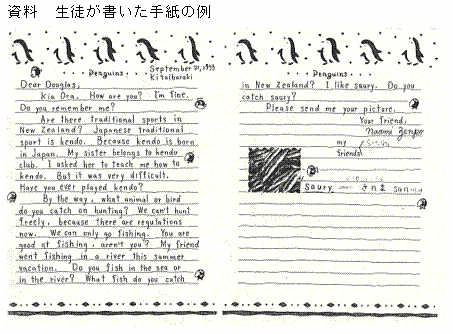 資料 生徒が書いた手紙の例
Penguins
September 21, 1999
Kitaibaraki
Dear Douglas,
Kia Ora. How are you? I'm fine.
Do you remember me?
Are there traditional sports in
New Zealand? Japanese traditional
sport is kendo. Because kendo is born
in Japan. My sister belongs to kendo
club. I asked her to teach me how to
kendo. But it was very difficult.
Have you ever played kendo?
By the way, what animal or bird
do you catch on hunting? We can't hunt
freely, because there are regulations
now. We can only go fishing. You are
good at fishing, aren't you? My friend
went fishing in a river this summer
vacation. Do you fish in the sea or
in the river? What fish do you catch
Penguins
in New Zealand? I like saury. Do you
catch saury?
Please send me your picture.
Your friend,
Naomi
my
friends!
Saury さんま